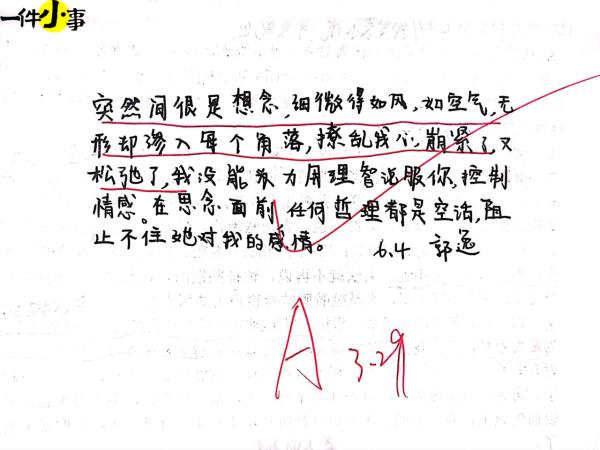 一件小事
突然间很是想念,细微得如风,如空气,无
形却渗入每个角落,撩乱我心,崩紧了,又
松弛了,我没能努力用理智说服你,控制
情感。在思念面前,任何哲理都是空话,阻
止不住她对我的感情。
6.4 郭逸
A 3.29